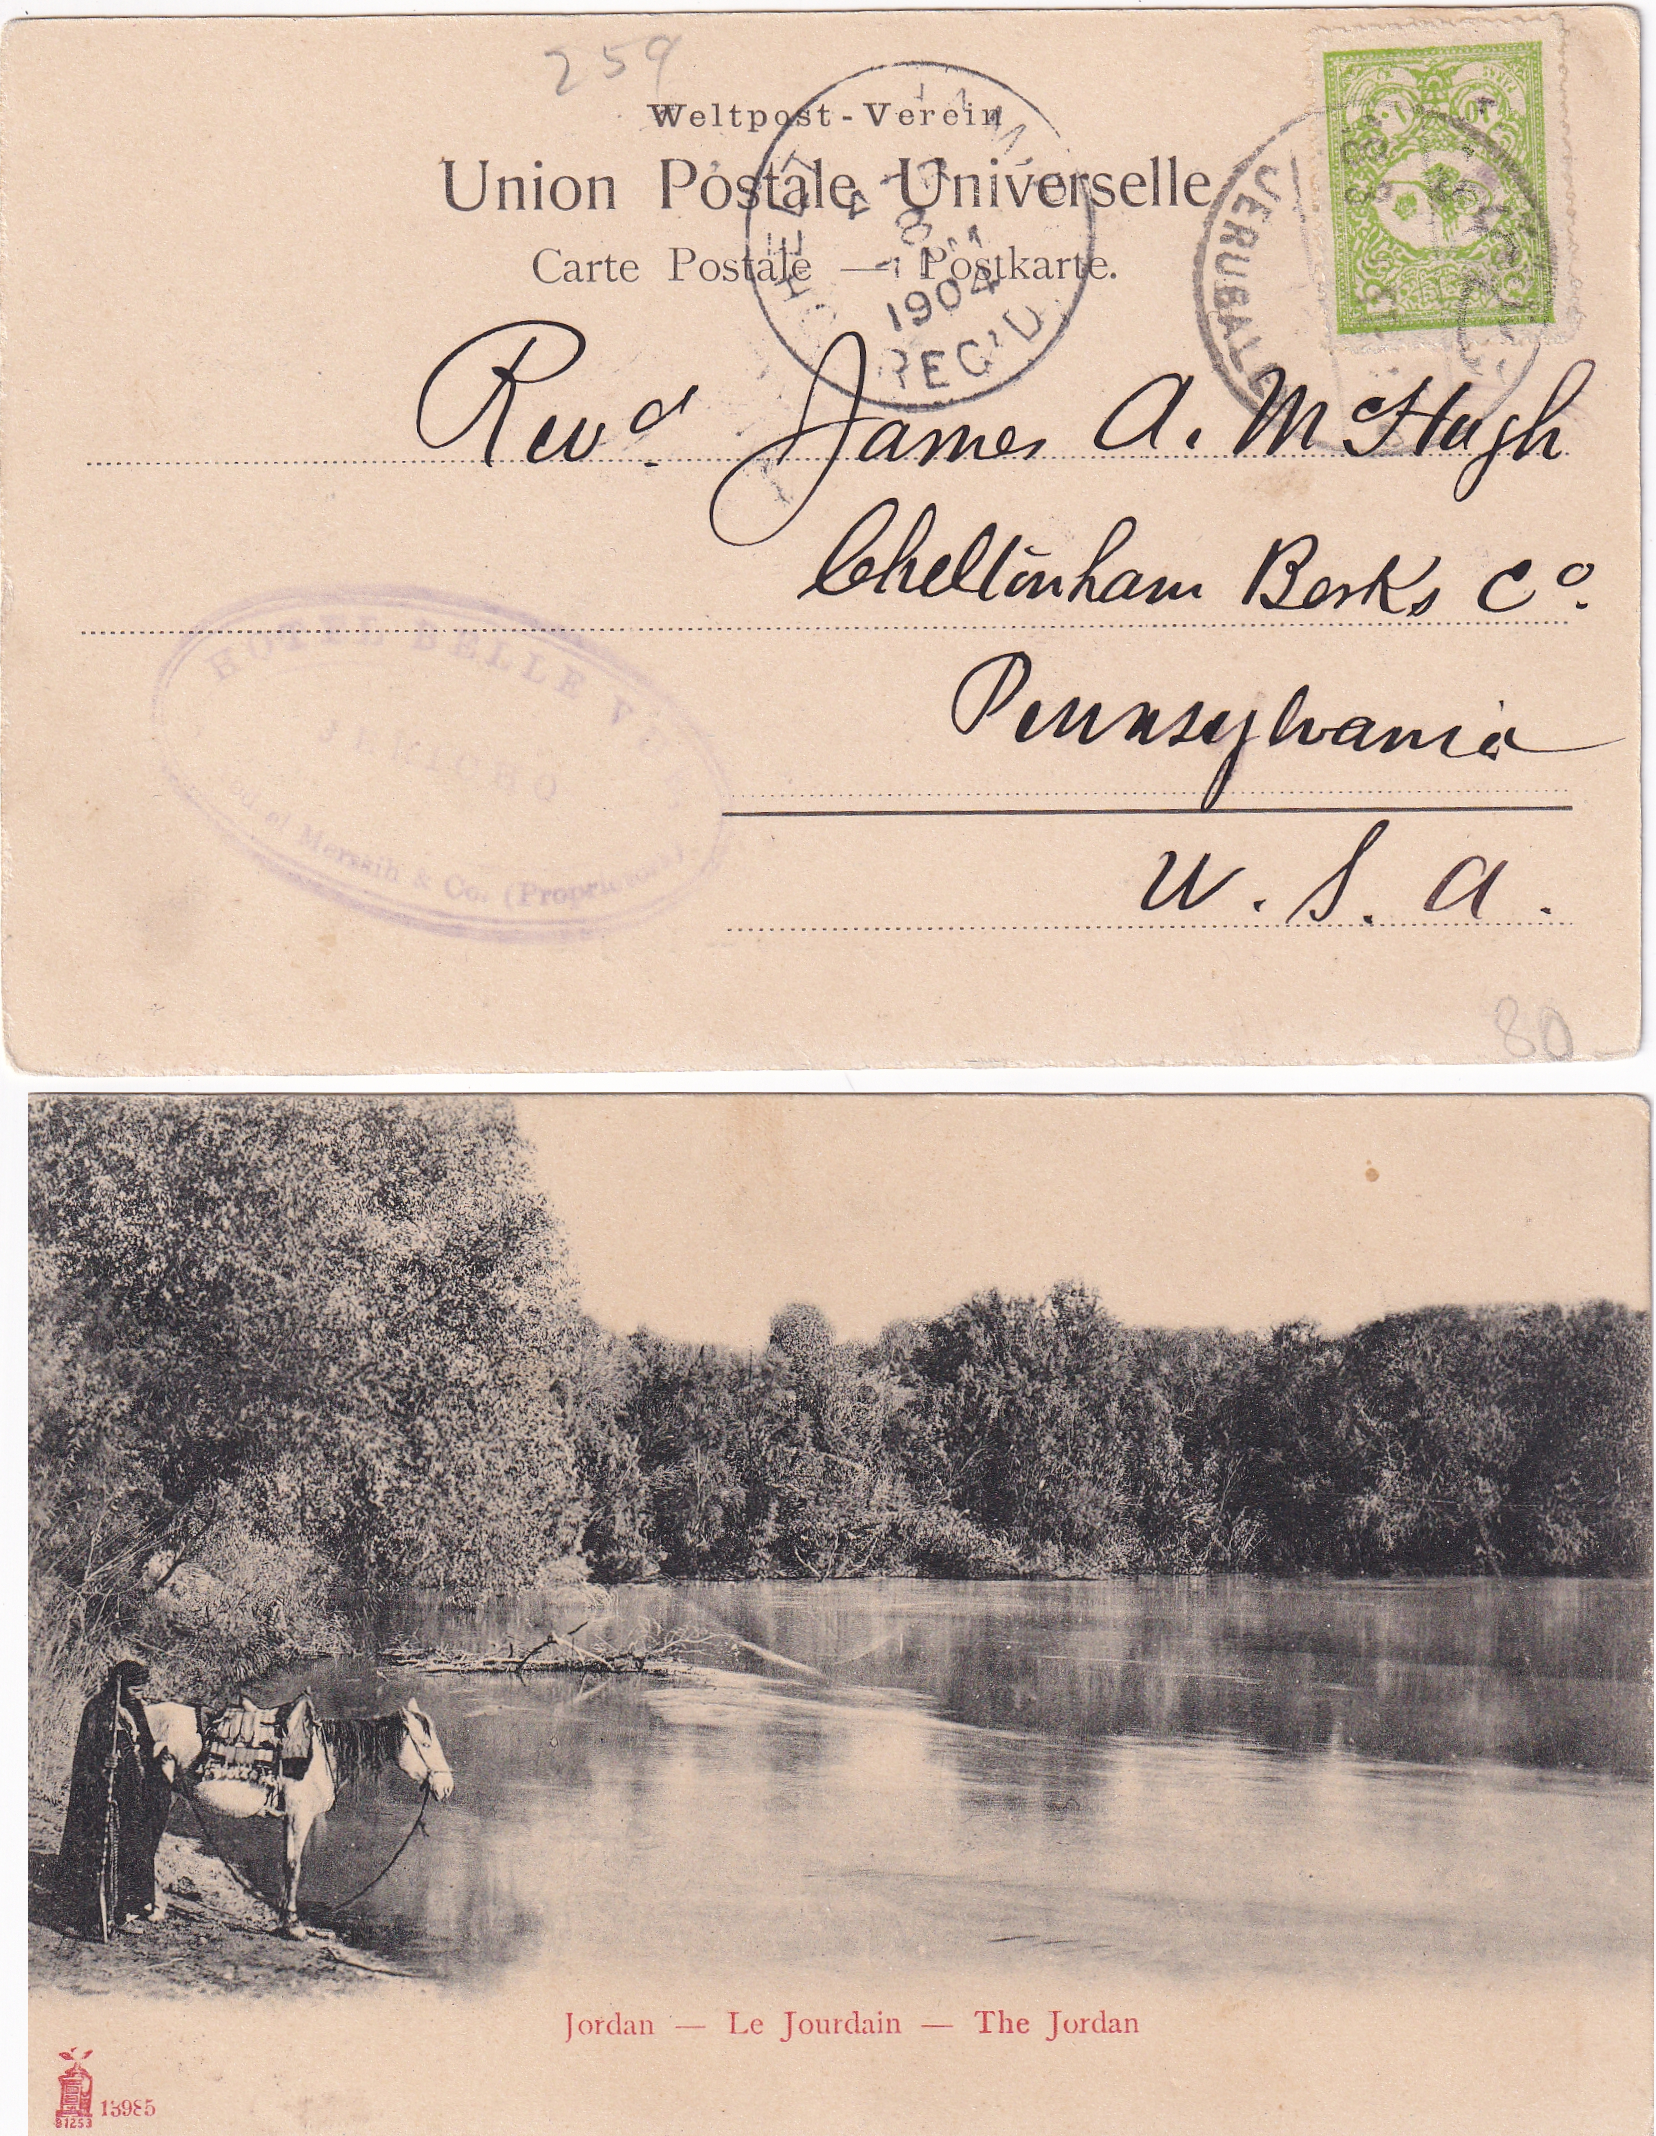 259
Weltpost-Verein
Union Postale Universelle
Carte Postale — Postkarte.
8
1904
REC'D.
JERUSALE
Revd. James A. McHugh
Cheltenham Berks Co.
Pennsylvania
U. S. A.
HOTEL BELLE VUE
JERICHO
& Co. (Proprietors)
80
Jordan — Le Jourdain — The Jordan
13985